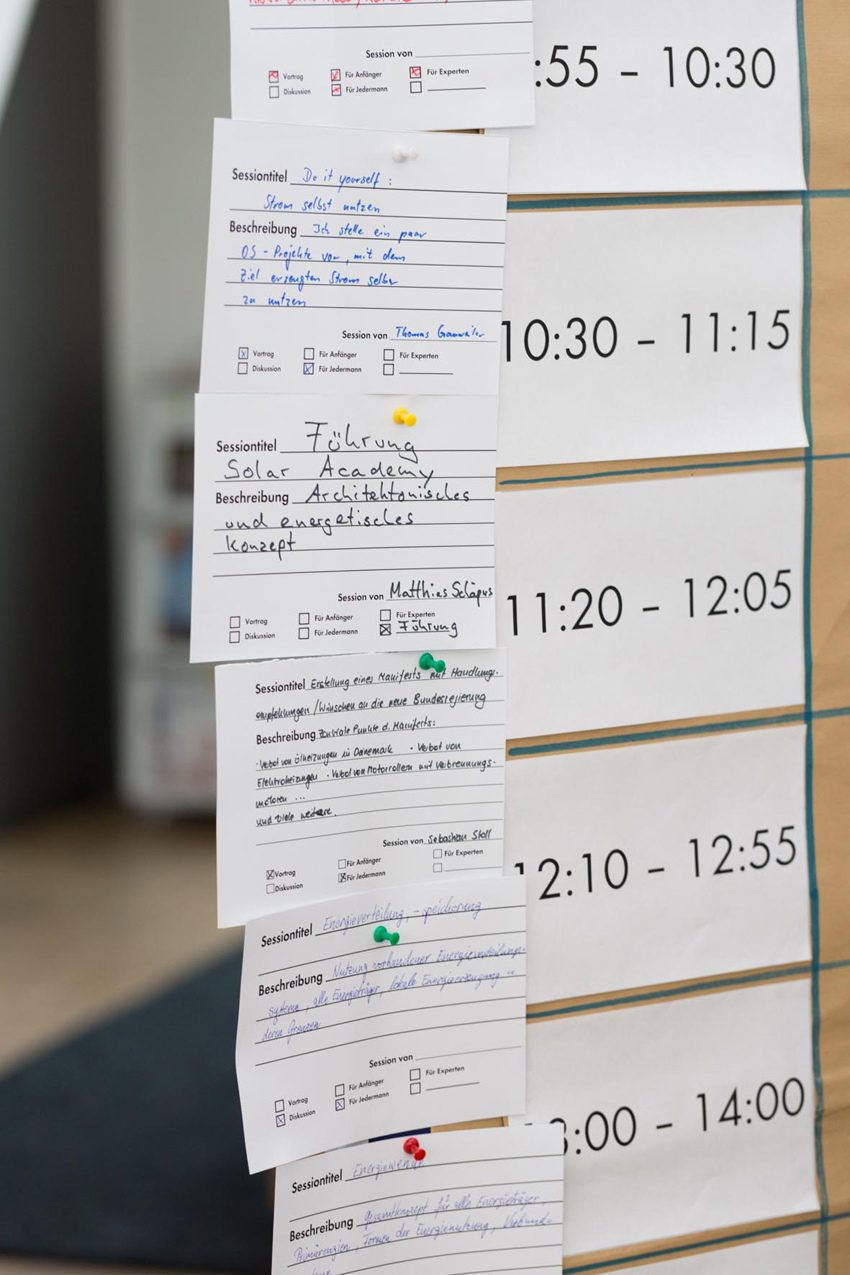 Session von
Vortrag Für Anfänger Für Experten
Diskussion Für Jedermann
:55 – 10:30
Sessiontitel Do it yourself :
Strom selbst nutzen
Beschreibung Ich stelle ein paar
OS - Projekte vor, mit dem
Ziel erzeugten Strom selber
zu nutzen
Session von Thomas
Vortrag Für Anfänger Für Experten
Diskussion Für Jedermann
10:30 – 11:15
Sessiontitel Führung
Solar Academy
Beschreibung Architektonisches
und energetisches
Konzept
Session von Matthias
Vortrag Für Anfänger Für Experten
Diskussion Für Jedermann Führung
11:20 – 12:05
Sessiontitel Erstellung eines Manifests mit Handlungs-
empfehlungen / Wünschen an die neue Bundesregierung
Beschreibung Zentrale Punkte d. Manifests:
· Verbot von Ölheizungen in Dänemark · Verbot von
Elektroheizungen · Verbot von Motorrollern mit Verbrennungs-
motoren ...
und viele weitere.
Session von Sebastian Stoll
Vortrag Für Anfänger Für Experten
Diskussion Für Jedermann
12:10 – 12:55
Sessiontitel Energieverteilung, -speicherung
Beschreibung Nutzung vorhandener Energieverteilungs-
systeme, alle Energieträger, lokale Energieerzeugung
deren Grenzen
Session von
Vortrag Für Anfänger Für Experten
Diskussion Für Jedermann
:00 – 14:00
Sessiontitel Energiewende
Beschreibung Gesamtkonzept für alle Energieträger,
Formen der Energienutzung,